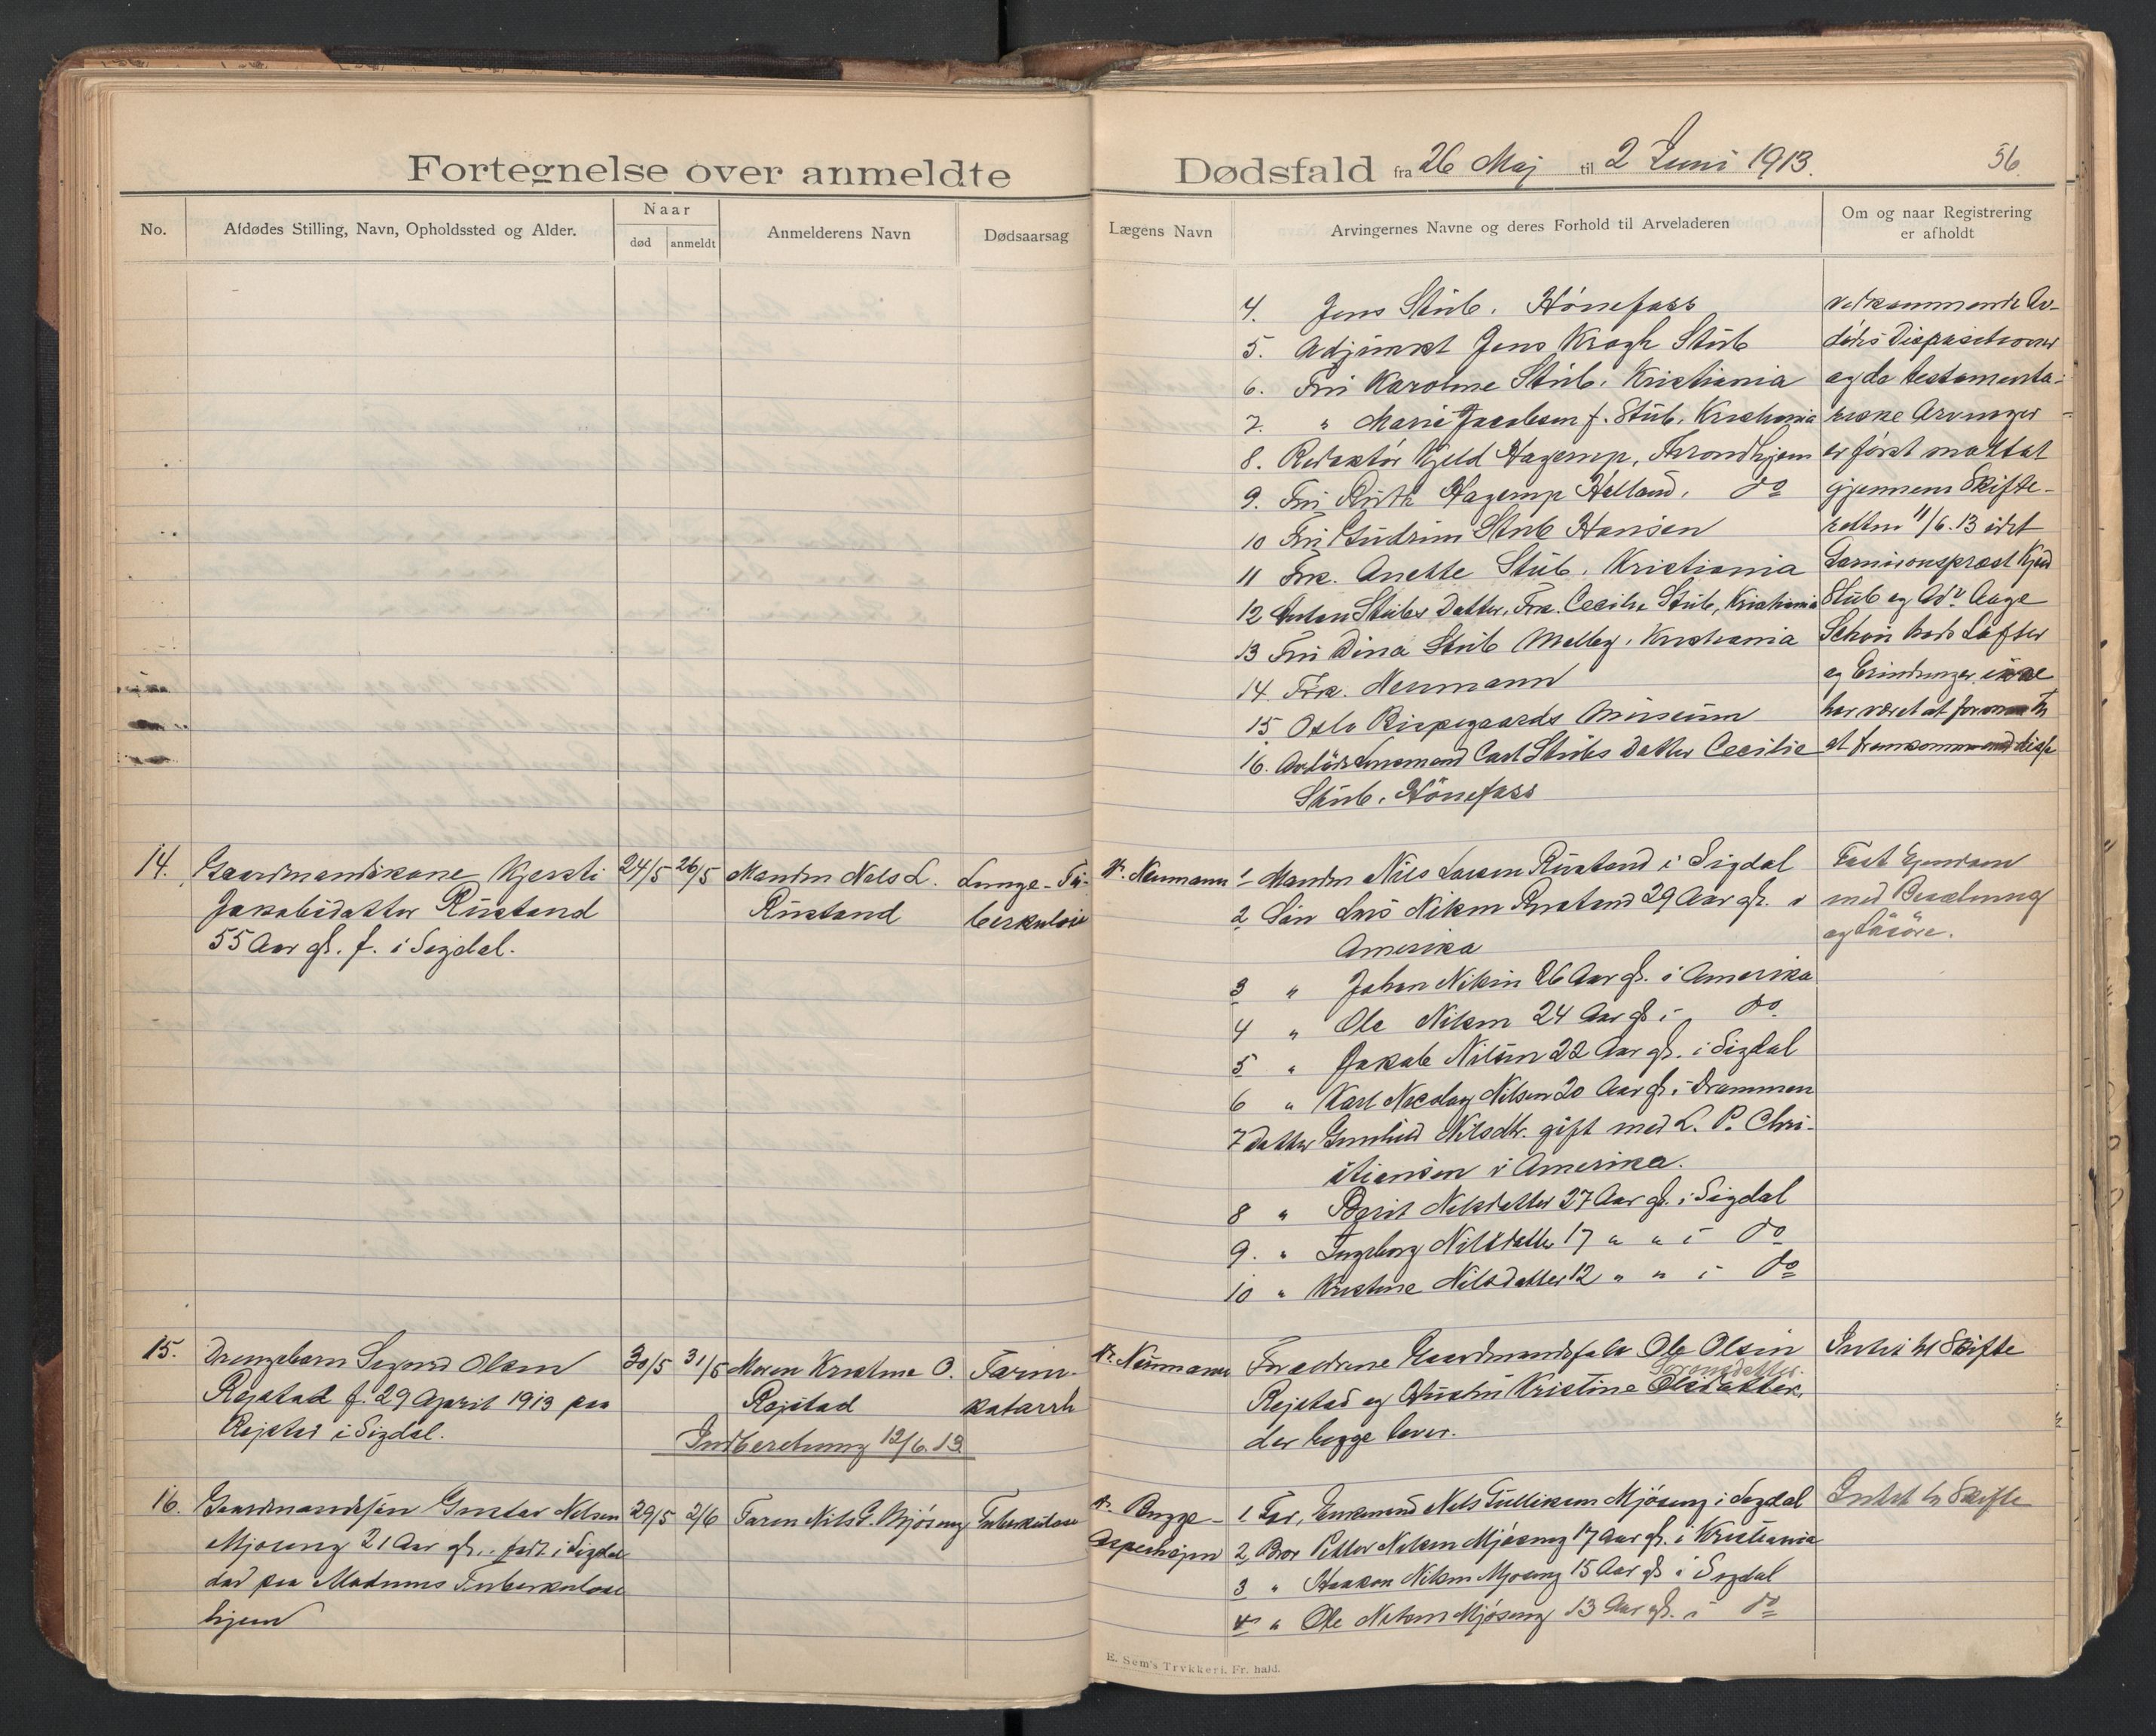 Fortegnelse over anmeldte
Dødsfald fra 26 Maj til 2 Juni 1913.
56.
No.
Afdødes Stilling, Navn, Opholdssted og Alder.
Naar
død
anmeldt
Anmelderens Navn
Dødsaarsag
Lægens Navn
Arvingernes Navne og deres Forhold til Arveladeren
Om og naar Registrering
er afholdt
4. Jens Stub. Hönefoss
5. Adjunkt Jens Kragh Stub
6. Fru Karoline Stub. Kristiania
7. " Marie Jacobsen f. Stub. Kristiania
8. Redaktör Kjeld Hagerup, Throndhjem
9. Fru Ruth Hagerup Helland. do
10 Fru Gudrun Stub Hansen
11 Frk. Anette Stub. Kristiania
12 Anton Stubs Datter, Frk. Cecilie Stub, Kristiania
13 Fru Dina Stub Melby. Kristiania
14. Frk. Neumann
15 Oslo Museum
16. Lensmand Carl Stubs Datter Cecilie
Stub. Hönefoss
vedkommende Av-
döds Dispositioner
og de testamenta-
riske Arvinger
er först mottat
gjennem Skifte-
retten 11/6.13 idet
Kjeld
Stub og Adv. Aage
Schou Lofter
og Erindringer ikke
har været at
at
14.
Gaardmandskone Kjersti
Jakobsdatter Rustand
55 Aar gl. f. i Sigdal.
24/5 26/5
Manden Nels L.
Rustand
Lunge-Tu-
berkulose
Dr. Neumann
1 Manden Nils Larsen Rustand i Sigdal
2 Sön Lars Nilsen Rustand 29 Aar gl. i
Amerika
3 " Johan Nilsen 26 Aar gl. i Amerika
4 " Ole Nilsen 24 Aar gl. i do
5 " Jakob Nilsen 22 Aar gl. i Sigdal
6 " Karl Nilsen 20 Aar gl. i Drammen
7 Datter Gunhild Nilsdtr. gift med L. P. Chri-
stiansen i Amerika.
8 " Berit Nelsdatter 27 Aar gl. i Sigdal
9. " Ingeborg Nilsdatter 17 " " i do
10 " Kristine Nilsdatter 12 " " i do
Fast Eiendom
med Besætning
og Lösöre.
15.
Drengebarn Sigurd Olsen
Rejstad f. 29 April 1913 paa
Rejstad i Sigdal.
30/5 31/5
Moren Kristine O.
Rejstad
Tarm-
katarrh
Indberetning 12/6.13
Dr. Neumann
Forældrene Gaardmandsfolk Ole Olsen
Sörensdatter
Rejstad og Hustru Kristine Olsdatter,
der begge lever.
Intet til Skifte
16.
Gaardmandssön Gustav Nelsen
Mjöseng 21 Aar gl. född i Sigdal
död paa Modums Tuberkulose
hjem
29/5 2/6
Faren Nils G. Mjöseng
Tuberkulose
Dr. Bugge-
Asperheim
1. Far, Enkemand Nels Gulliksen Mjöseng i Sigdal
2. Bror Petter Nilsen Mjöseng 17 Aar gl. i Kristiania
3 " Haakon Nilsen Mjöseng 15 Aar gl. i Sigdal
4 " Ole Nilsen Mjöseng 13 Aar gl. i do
Intet til Skifte
E. Sem's Trykkeri. Fr. hald.